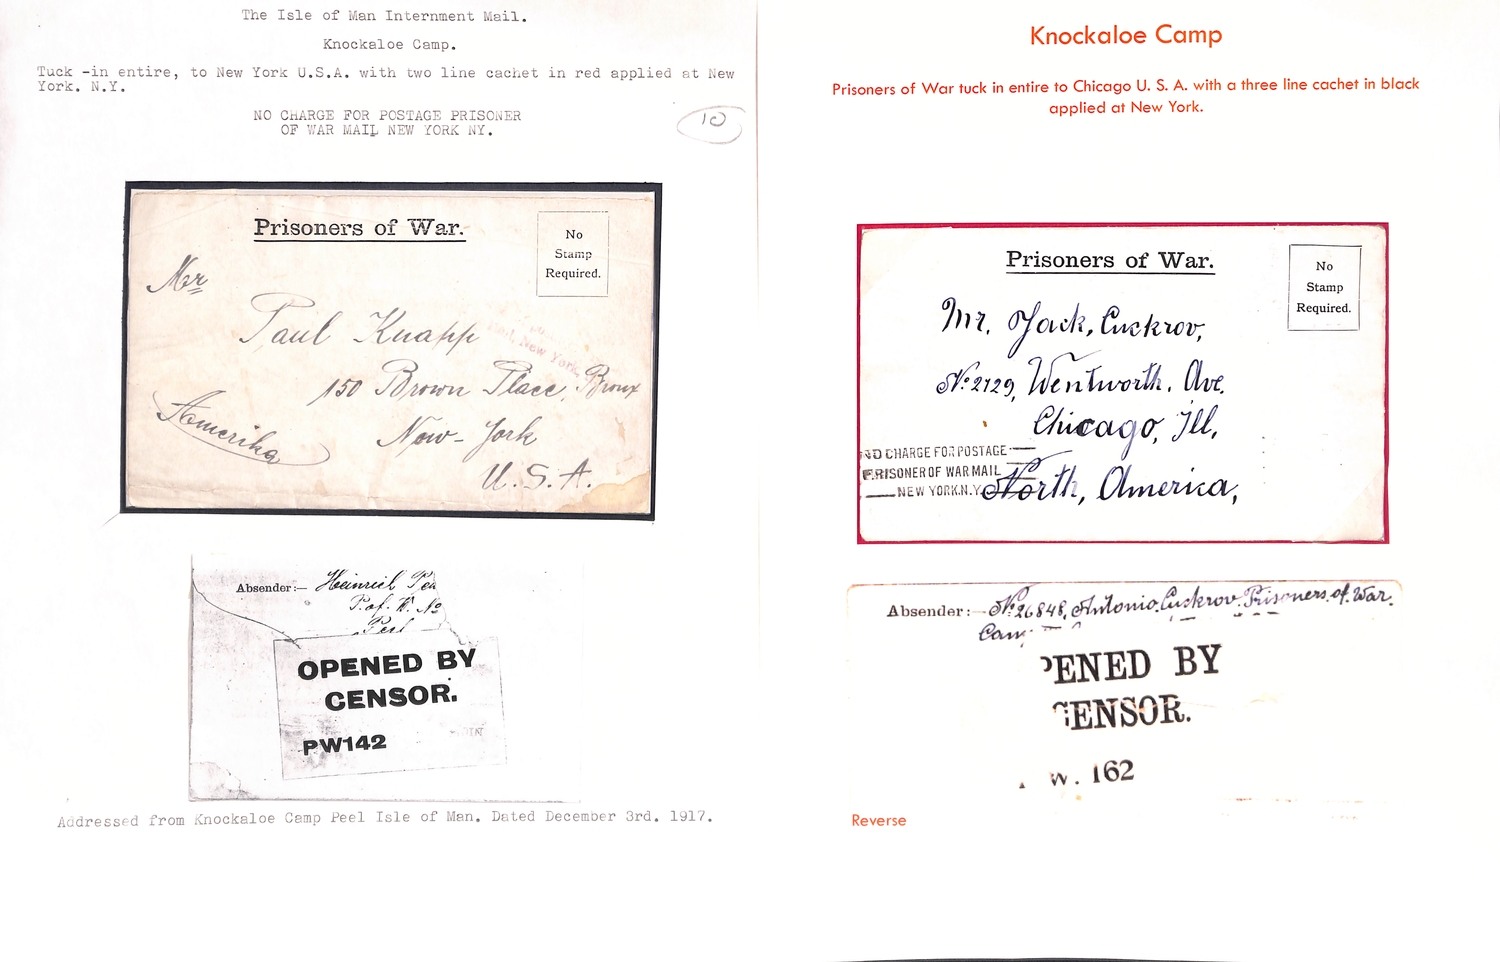 The Isle of Man Internment Mail.
Knockaloe Camp.
Tuck -in entire, to New York U.S.A. with two line cachet in red applied at New
York. N.Y.
NO CHARGE FOR POSTAGE PRISONER
OF WAR MAIL NEW YORK NY.
10
Prisoners of War.
No
Stamp
Required.
Mr
Paul Knapp
150 Brown Place, Bronx
New-York
U.S.A.
Amerika
New York,
Absender:—
Heinrich
P.of.W. No
Peel
OPENED BY
CENSOR.
PW142
Addressed from Knockaloe Camp Peel Isle of Man. Dated December 3rd. 1917.
Knockaloe Camp
Prisoners of War tuck in entire to Chicago U. S. A. with a three line cachet in black
applied at New York.
Prisoners of War.
No
Stamp
Required.
Mr. Jack, Cuskrov,
No. 2129, Wentworth. Ave.
Chicago, Ill,
North, America,
NO CHARGE FOR POSTAGE
PRISONER OF WAR MAIL
NEW YORK.N.Y.
Absender:— No. 26848, Antonio. Cuskrov. Prisoners. of. War.
PENED BY
CENSOR.
W. 162
Reverse